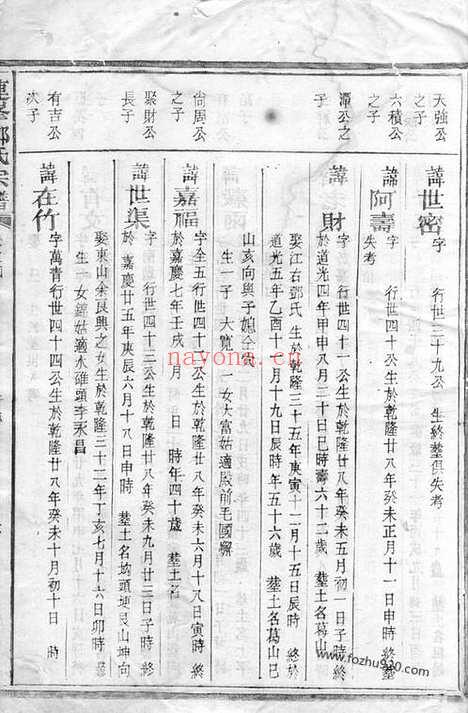 天強公
之子
諱世密
字 行世三十九公 生終墓俱失考
六積公
之子
諱阿壽
字 行世四十公生於乾隆廿八年癸未正月十一日申時 終墓
失考
潭公之
子
諱 財
字 行世四十一公生於乾隆廿八年癸未五月初一日子時 終
於道光四年甲申八月三十日巳時壽六十二歲 墓土名葛山
娶江右鄧氏 生於乾隆三十五年庚寅十一月十五日辰時 終於
道光五年乙酉十月十九日辰時年五十六歲 墓土名葛山巳
山亥向與子媳仝穴
生一子 大覽 一女大富姑適殿前毛國
尚周公
之子
諱嘉福
字全五行世四十二公生於乾隆廿八年癸未六月十八日寅時 終
於嘉慶七年壬戌 月 日 時年四十歲 墓土名
聚財公
長子
諱世集
字 行世四十三公生於乾隆廿八年癸未九月廿三日子時 終
於嘉慶廿五年庚辰六月十八日申時 墓土名 頭 艮山坤向
娶東山余艮興之女生於乾隆三十二年丁亥七月十六日卯時 終
生一女 姑適水碓頭李永昌
有吉公
次子
諱在竹
字萬青行世四十四公生於乾隆廿八年癸未十月初十日 時
氏宗譜
nayona.cn
www.fozhu920.com